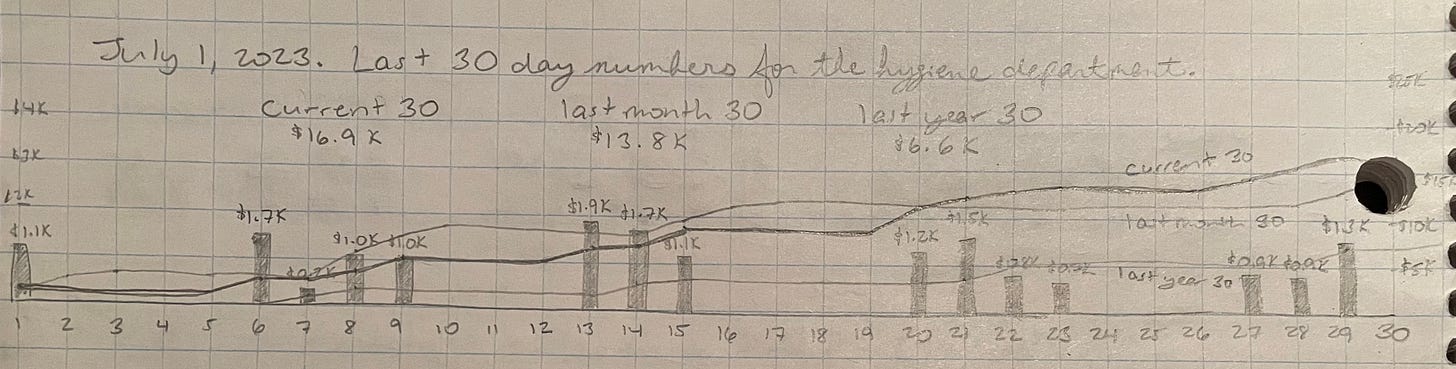 July 1, 2023. Last 30 day numbers for the hygiene department.
$25K
$4K current 30 last month 30 last year 30
$16.9K $13.8K $6.6K $20K
$3K current 30
$2K
$1.7K $1.9K $1.7K $1.5K last month 30 $1.3K $10K
$1.1K $1.0K $1.0K $1.1K $1.2K
last year 30 $0.9K $0.9K $5K
1 2 3 4 5 6 7 8 9 10 11 12 13 14 15 16 17 18 19 20 21 22 23 24 25 26 27 28 29 30